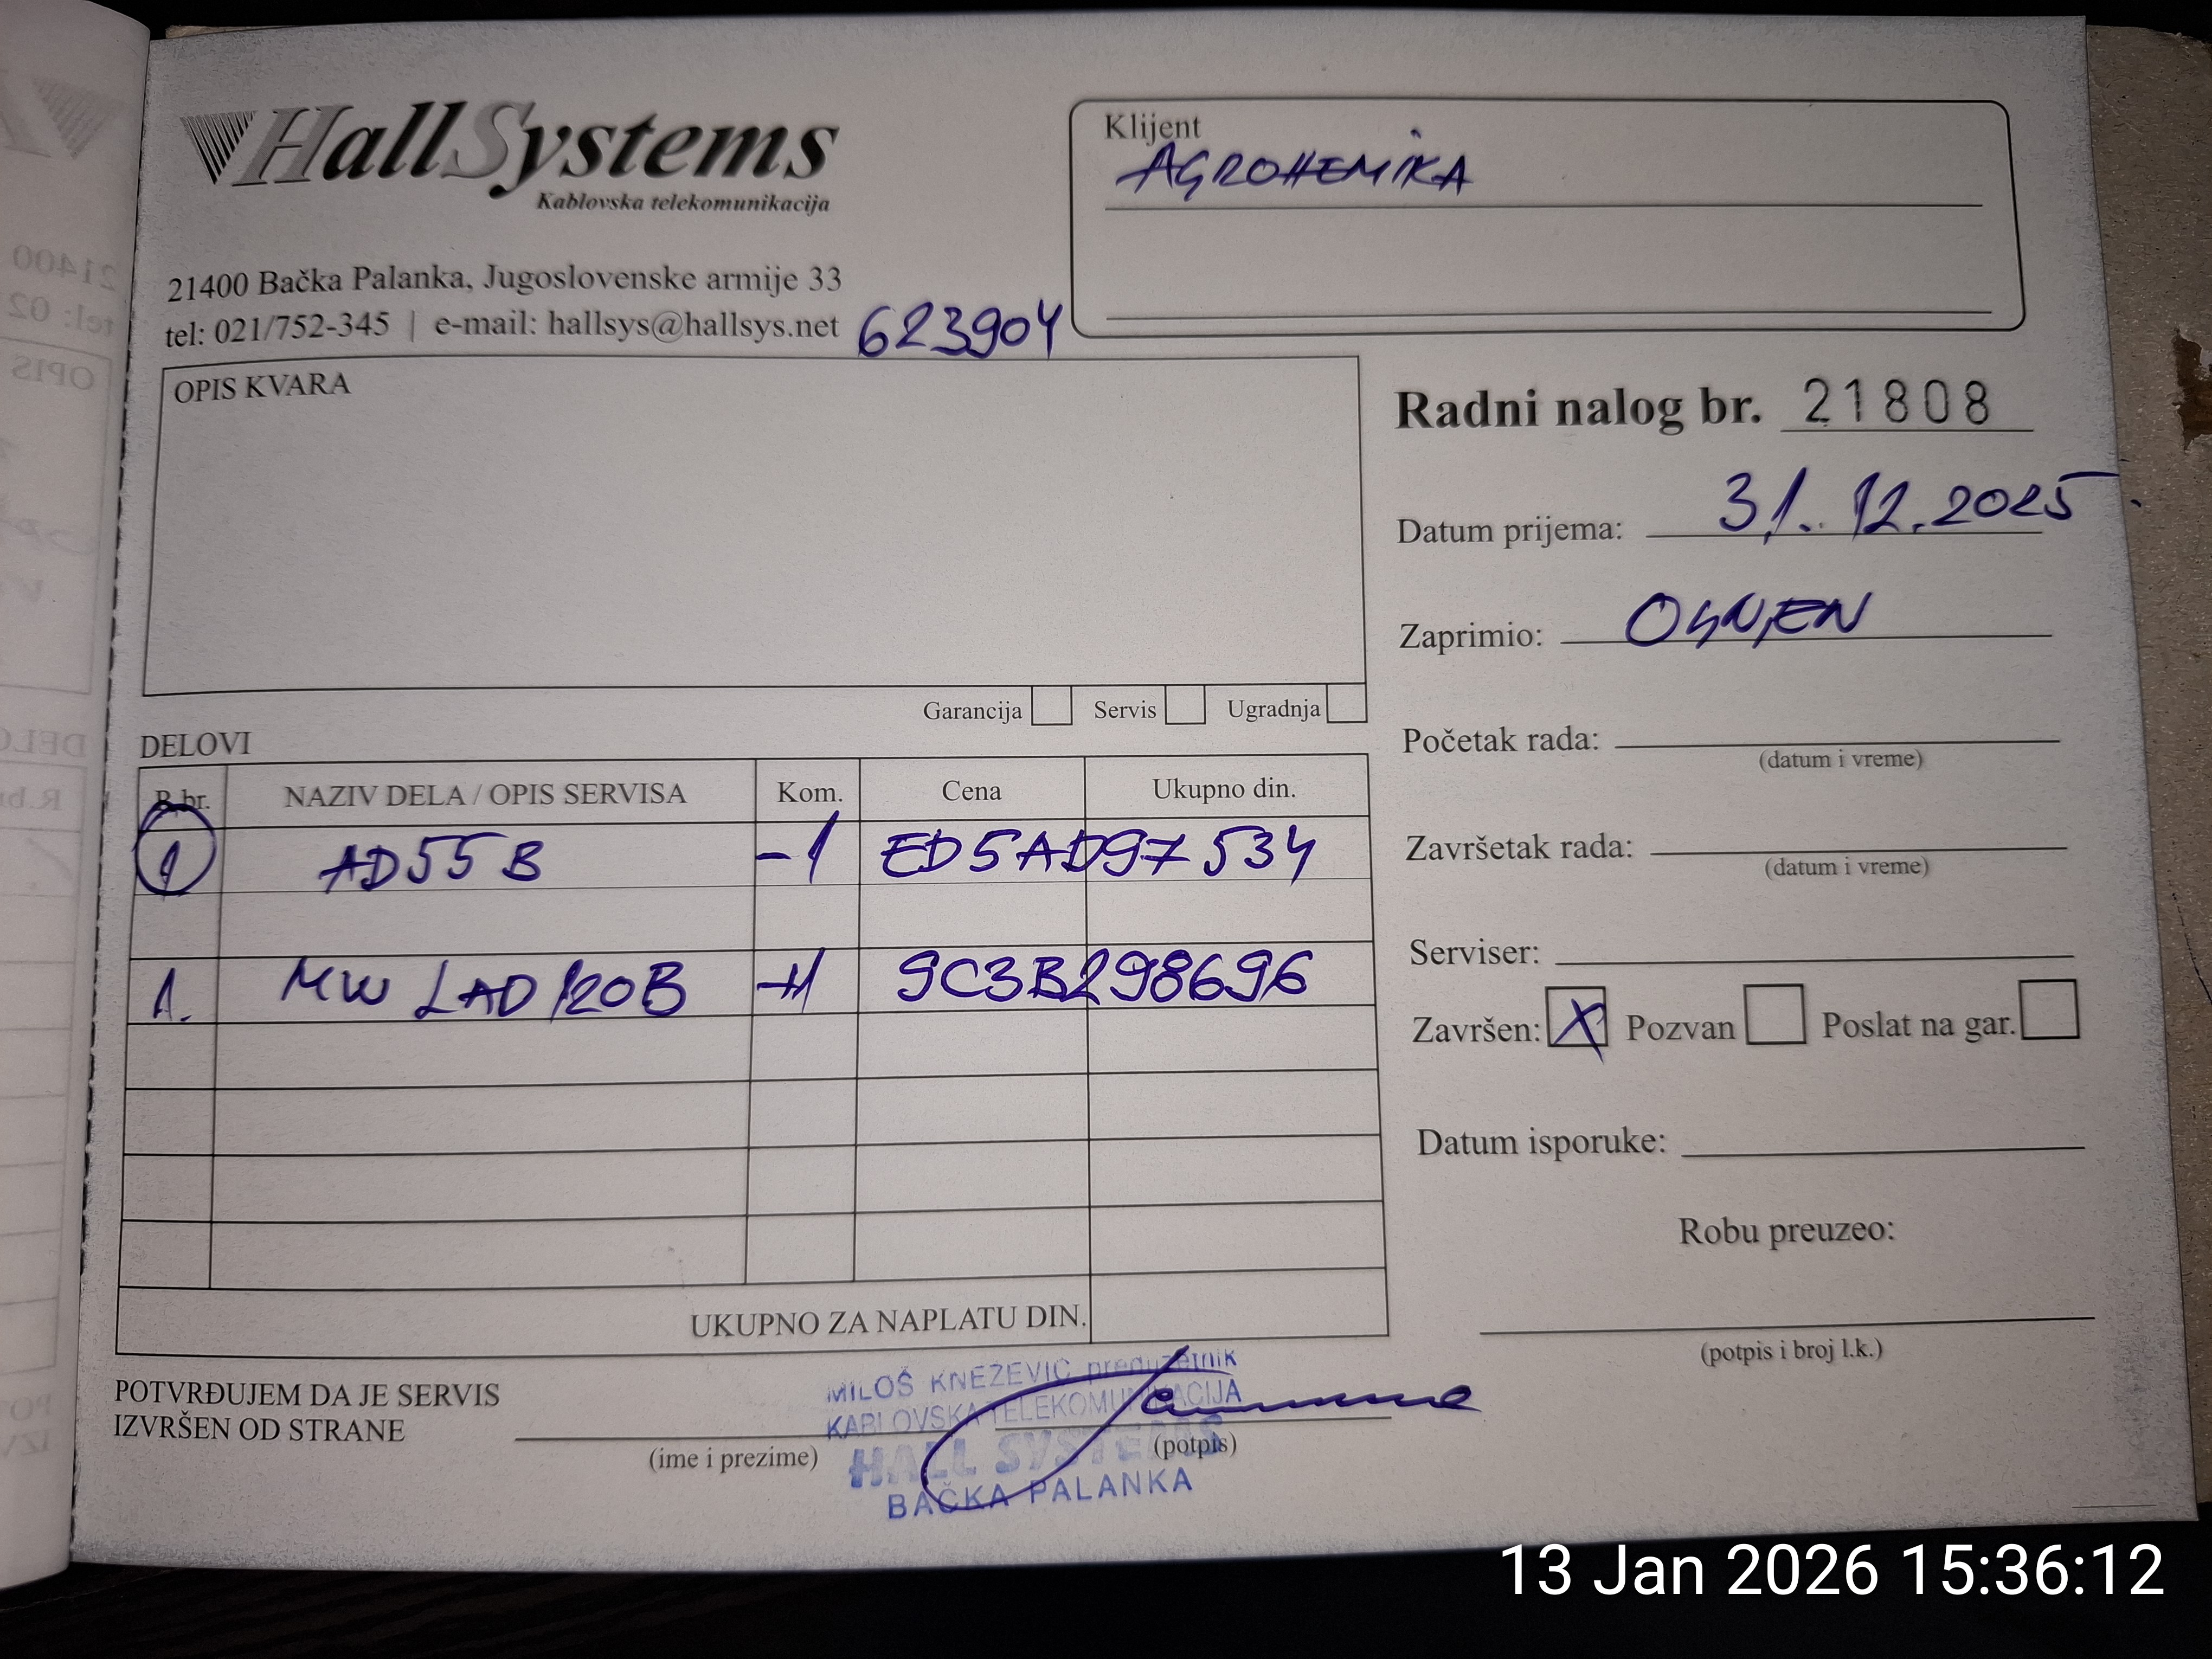 HallSystems
Kablovska telekomunikacija
21400 Bačka Palanka, Jugoslovenske armije 33
tel: 021/752-345 | e-mail: hallsys@hallsys.net 623904
Klijent
AGROHEMIKA
OPIS KVARA
Garancija Servis Ugradnja
Radni nalog br. 21808
Datum prijema: 31.12.2025.
Zaprimio: OGNJEN
Početak rada:
(datum i vreme)
Završetak rada:
(datum i vreme)
Serviser:
Završen: X Pozvan Poslat na gar.
Datum isporuke:
Robu preuzeo:
(potpis i broj l.k.)
DELOVI
R.br. NAZIV DELA / OPIS SERVISA Kom. Cena Ukupno din.
1 AD55B -1 ED5AD97534
1. MW LAD120B +1 9C3B298696
UKUPNO ZA NAPLATU DIN.
POTVRĐUJEM DA JE SERVIS
IZVRŠEN OD STRANE
(ime i prezime)
(potpis)
MILOŠ KNEŽEVIĆ preduzetnik
KABLOVSKA TELEKOMUNIKACIJA
HALL SYSTEMS
BAČKA PALANKA
13 Jan 2026 15:36:12